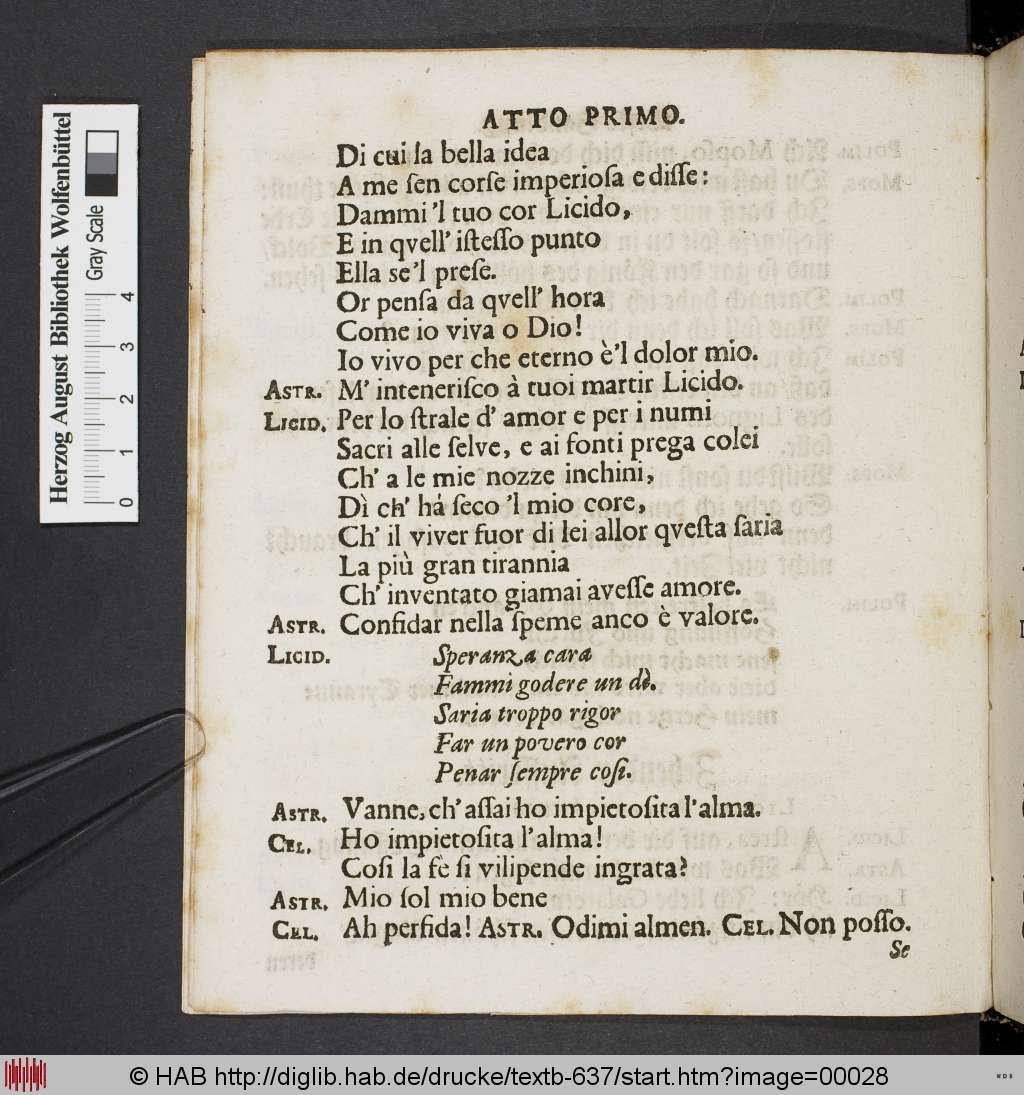 ATTO PRIMO.
Di cui la bella idea
A me ſen corſe imperioſa e diſſe:
Dammi 'l tuo cor Licido,
E in qvell' iſteſſo punto
Ella se'l preſe.
Or penſa da qvell' hora
Come io viva o Dio!
Io vivo per che eterno è'l dolor mio.
ASTR. M' inteneriſco à tuoi martir Licido.
LICID. Per lo ſtrale d' amor e per i numi
Sacri alle ſelve, e ai fonti prega colei
Ch' a le mie nozze inchini,
Dì ch' há ſeco 'l mio core,
Ch' il viver fuor di lei allor qveſta ſaria
La più gran tirannia
Ch' inventato giamai aveſſe amore.
ASTR. Confidar nella ſpeme anco è valore.
LICID. Speranza cara
Fammi godere un dì.
Saria troppo rigor
Far un povero cor
Penar ſempre coſi.
ASTR. Vanne, ch' aſſai ho impietoſita l'alma.
CEL. Ho impietoſita l'alma!
Coſi la fè ſi vilipende ingrata?
ASTR. Mio ſol mio bene
CEL. Ah perfida! ASTR. Odimi almen. CEL. Non poſſo.
Se
Herzog August Bibliothek Wolfenbüttel
Gray Scale
0 1 2 3 4
© HAB http://diglib.hab.de/drucke/textb-637/start.htm?image=00028